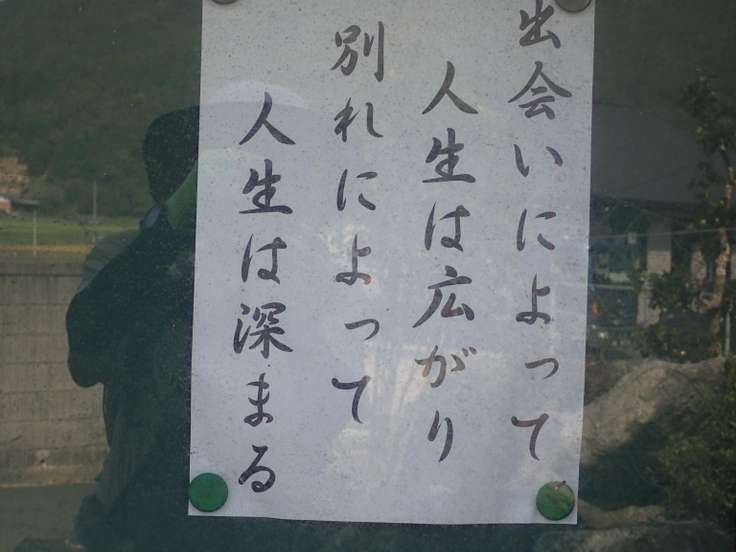 出会いによって
人生は広がり
別れによって
人生は深まる